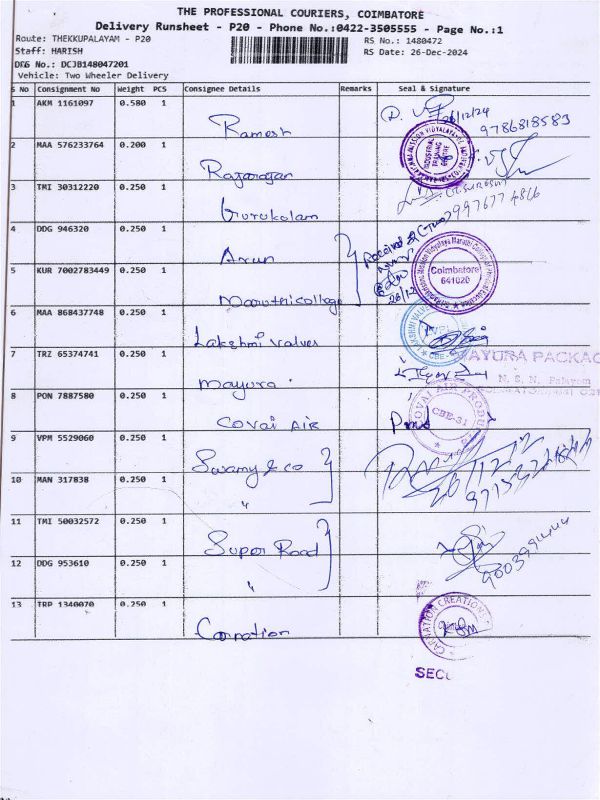 THE PROFESSIONAL COURIERS, COIMBATORE
Delivery Runsheet - P20 - Phone No.:0422-3505555 - Page No.:1
Route: THEKKUPALAYAM - P20
RS No.: 1480472
Staff: HARISH
RS Date: 26-Dec-2024
DRS No.: DCJB148047201
Vehicle: Two Wheeler Delivery
S No Consignment No Weight PCS Consignee Details Remarks Seal & Signature
1 AKM 1161097 0.580 1 Ramesh 26/12/24 9786818583
2 MAA 576233764 0.200 1 Rajarajan
3 TMI 30312220 0.250 1 Gurukulam
4 DDG 946320 0.250 1 Arun Received
5 KUR 7002783449 0.250 1 Maruthi college Coimbatore 641020
6 MAA 868437748 0.250 1 Lakshmi Valves
7 TRZ 65374741 0.250 1 Mayura MAYURA PACKAG
N. S. N. Palayam
8 PON 7887580 0.250 1 COVAI AIR COVAI AIR PRODU CBE-31
9 VPM 5529060 0.250 1 Swamy & co
10 MAN 317838 0.250 1 "
11 TMI 50032572 0.250 1 Super Road
12 DDG 953610 0.250 1 "
13 TRP 1340070 0.250 1 Carnation CARNATION CREATIONS
SECU